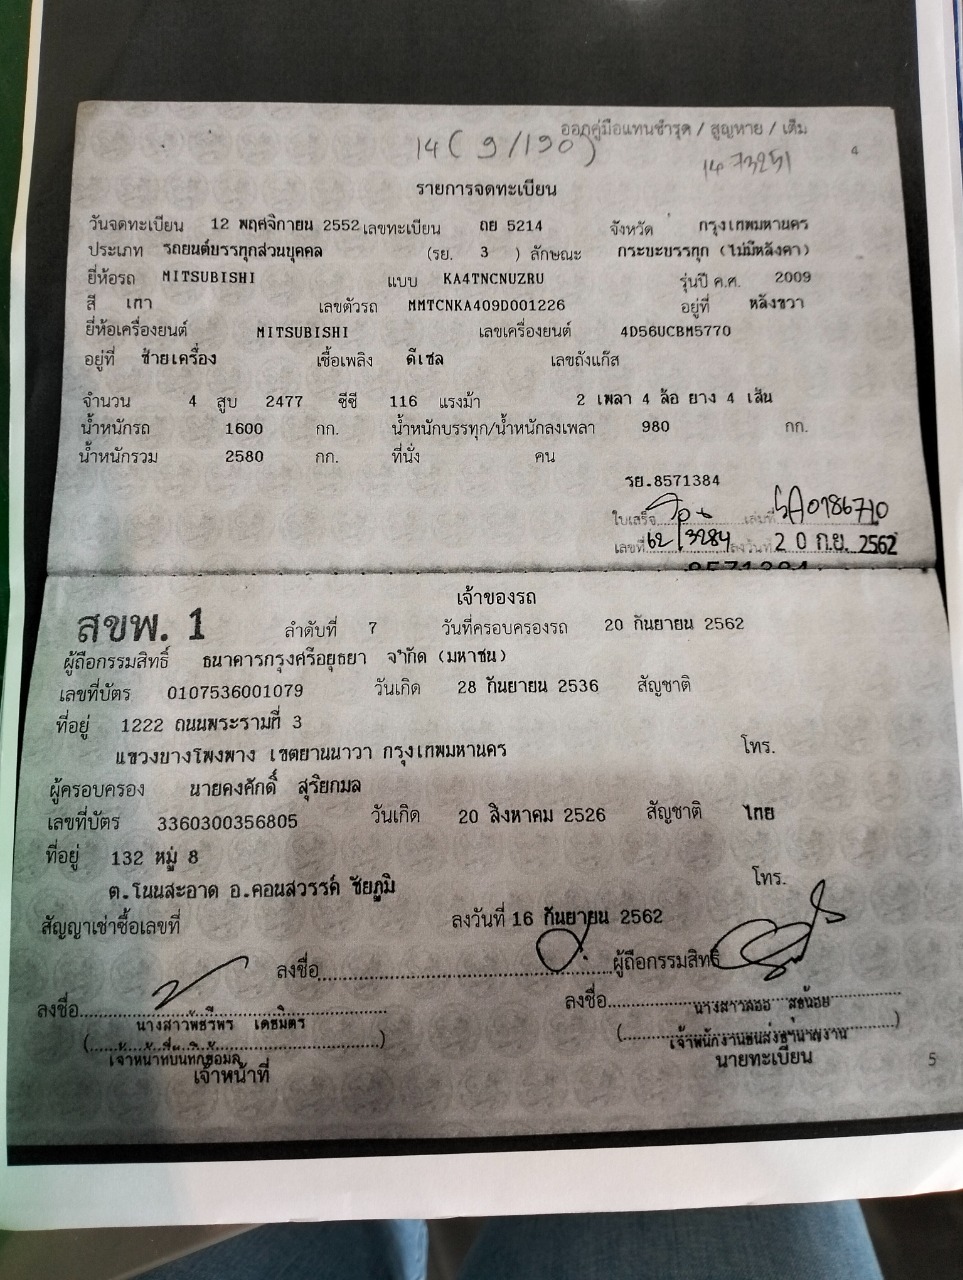 ออกคู่มือแทนชำรุด / สูญหาย / เดิม
14 ( 9/190 )
14 73251
4
รายการจดทะเบียน
วันจดทะเบียน 12 พฤศจิกายน 2552 เลขทะเบียน ถย 5214 จังหวัด กรุงเทพมหานคร
ประเภท รถยนต์บรรทุกส่วนบุคคล (รย. 3 ) ลักษณะ กระบะบรรทุก (ไม่มีหลังคา)
ยี่ห้อรถ MITSUBISHI แบบ KA4TNCNUZRU รุ่นปี ค.ศ. 2009
สี เทา เลขตัวรถ MMTCNKA409D001226 อยู่ที่ หลังขวา
ยี่ห้อเครื่องยนต์ MITSUBISHI เลขเครื่องยนต์ 4D56UCBM5770
อยู่ที่ ซ้ายเครื่อง เชื้อเพลิง ดีเซล เลขถังแก๊ส
จำนวน 4 สูบ 2477 ซีซี 116 แรงม้า 2 เพลา 4 ล้อ ยาง 4 เส้น
น้ำหนักรถ 1600 กก. น้ำหนักบรรทุก/น้ำหนักลงเพลา 980 กก.
น้ำหนักรวม 2580 กก. ที่นั่ง คน
รย.8571384
ใบเสร็จ เล่มที่
เลขที่ 62/3284 ลงวันที่ 20 ก.ย. 2562
เจ้าของรถ
สขพ. 1 ลำดับที่ 7 วันที่ครอบครองรถ 20 กันยายน 2562
ผู้ถือกรรมสิทธิ์ ธนาคารกรุงศรีอยุธยา จำกัด (มหาชน)
เลขที่บัตร 0107536001079 วันเกิด 28 กันยายน 2536 สัญชาติ
ที่อยู่ 1222 ถนนพระรามที่ 3
แขวงบางโพงพาง เขตยานนาวา กรุงเทพมหานคร โทร.
ผู้ครอบครอง นายคงศักดิ์ สุริยกมล
เลขที่บัตร 3360300356805 วันเกิด 20 สิงหาคม 2526 สัญชาติ ไทย
ที่อยู่ 132 หมู่ 8
ต.โนนสะอาด อ.คอนสวรรค์ ชัยภูมิ โทร.
สัญญาเช่าซื้อเลขที่ ลงวันที่ 16 กันยายน 2562
ลงชื่อ ผู้ถือกรรมสิทธิ์
ลงชื่อ ลงชื่อ
นางสาวพัชรีพร เดชมิตร นางสาวลออ
เจ้าหน้าที่บันทึกข้อมูล เจ้าพนักงานขนส่งชำนาญงาน
เจ้าหน้าที่ นายทะเบียน
5